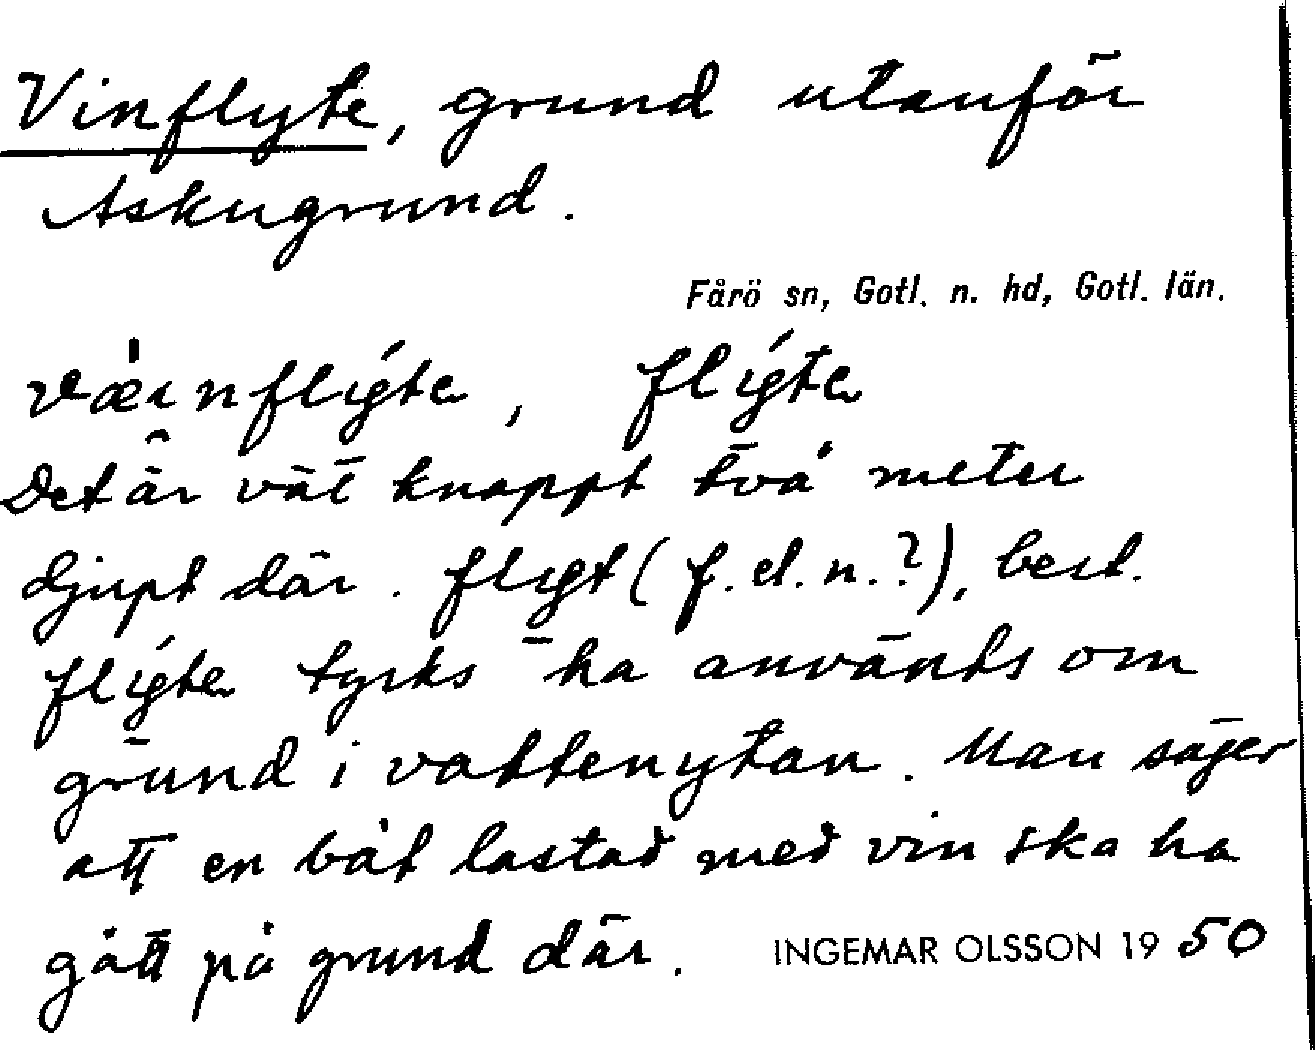 Vinflyte, grund utanför
Askugrund.
Fårö sn, Gotl. n. hd, Gotl. län.
väinflýte, flýte
Det är väl knappt två meter
djupt där. flyt (f. el. n.?), best.
flýte tycks ha använts om
grund i vattenytan. Man säger
att en båt lastad med vin ska ha
gått på grund där. INGEMAR OLSSON 1950